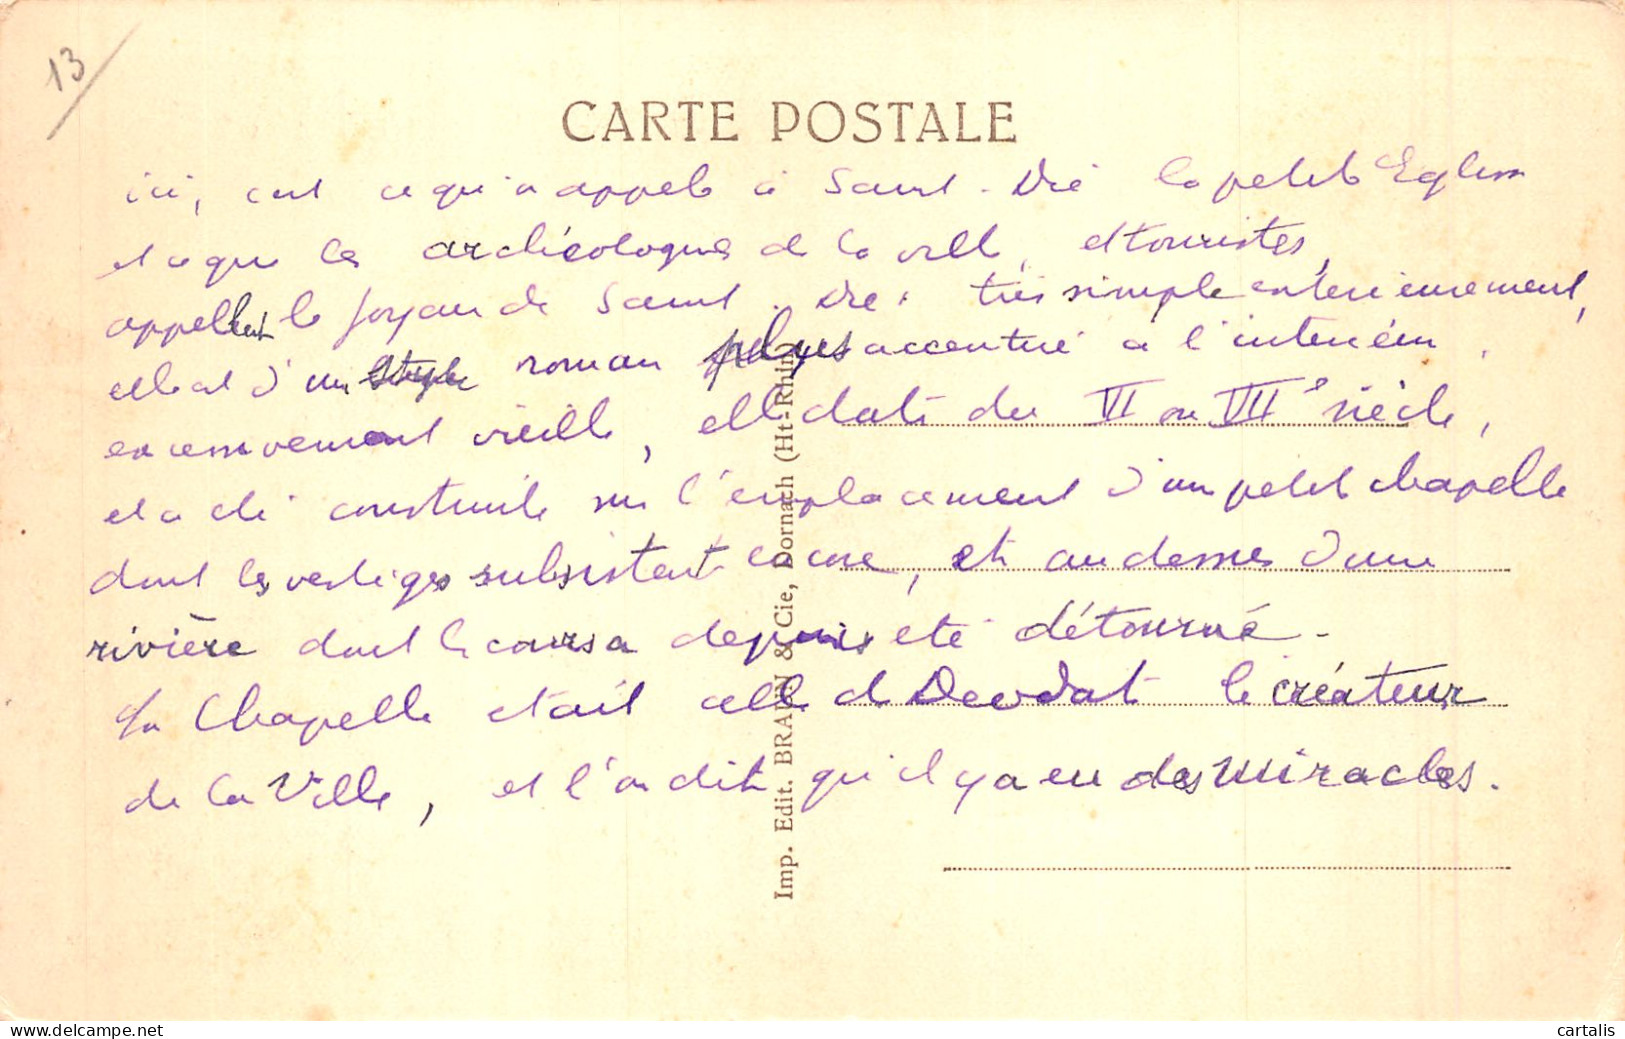 13
CARTE POSTALE
ici, c'est ce qu'on appele à Saint-Dié la petite Eglise
et ce que les archéologues de la ville, et touristes,
appellent le joyau de Saint-Dié, très simple exterieurement,
elle est d'un style roman plus accentué à l'interieur,
excessivement vieille, elle date du VI ou VII e siècle,
et a été construite sur l'emplacement d'un petite chapelle
dont les vestiges subsistent encore, et au dessus d'une
rivière dont le cours a depuis été détourné.
La Chapelle etait celle de Deodat le créateur
de la Ville, et l'on dit qu'il y a eu des miracles.
Imp. Edit. BRAUN & Cie, Dornach (Ht-Rhin)
cartalis
delcampe.net